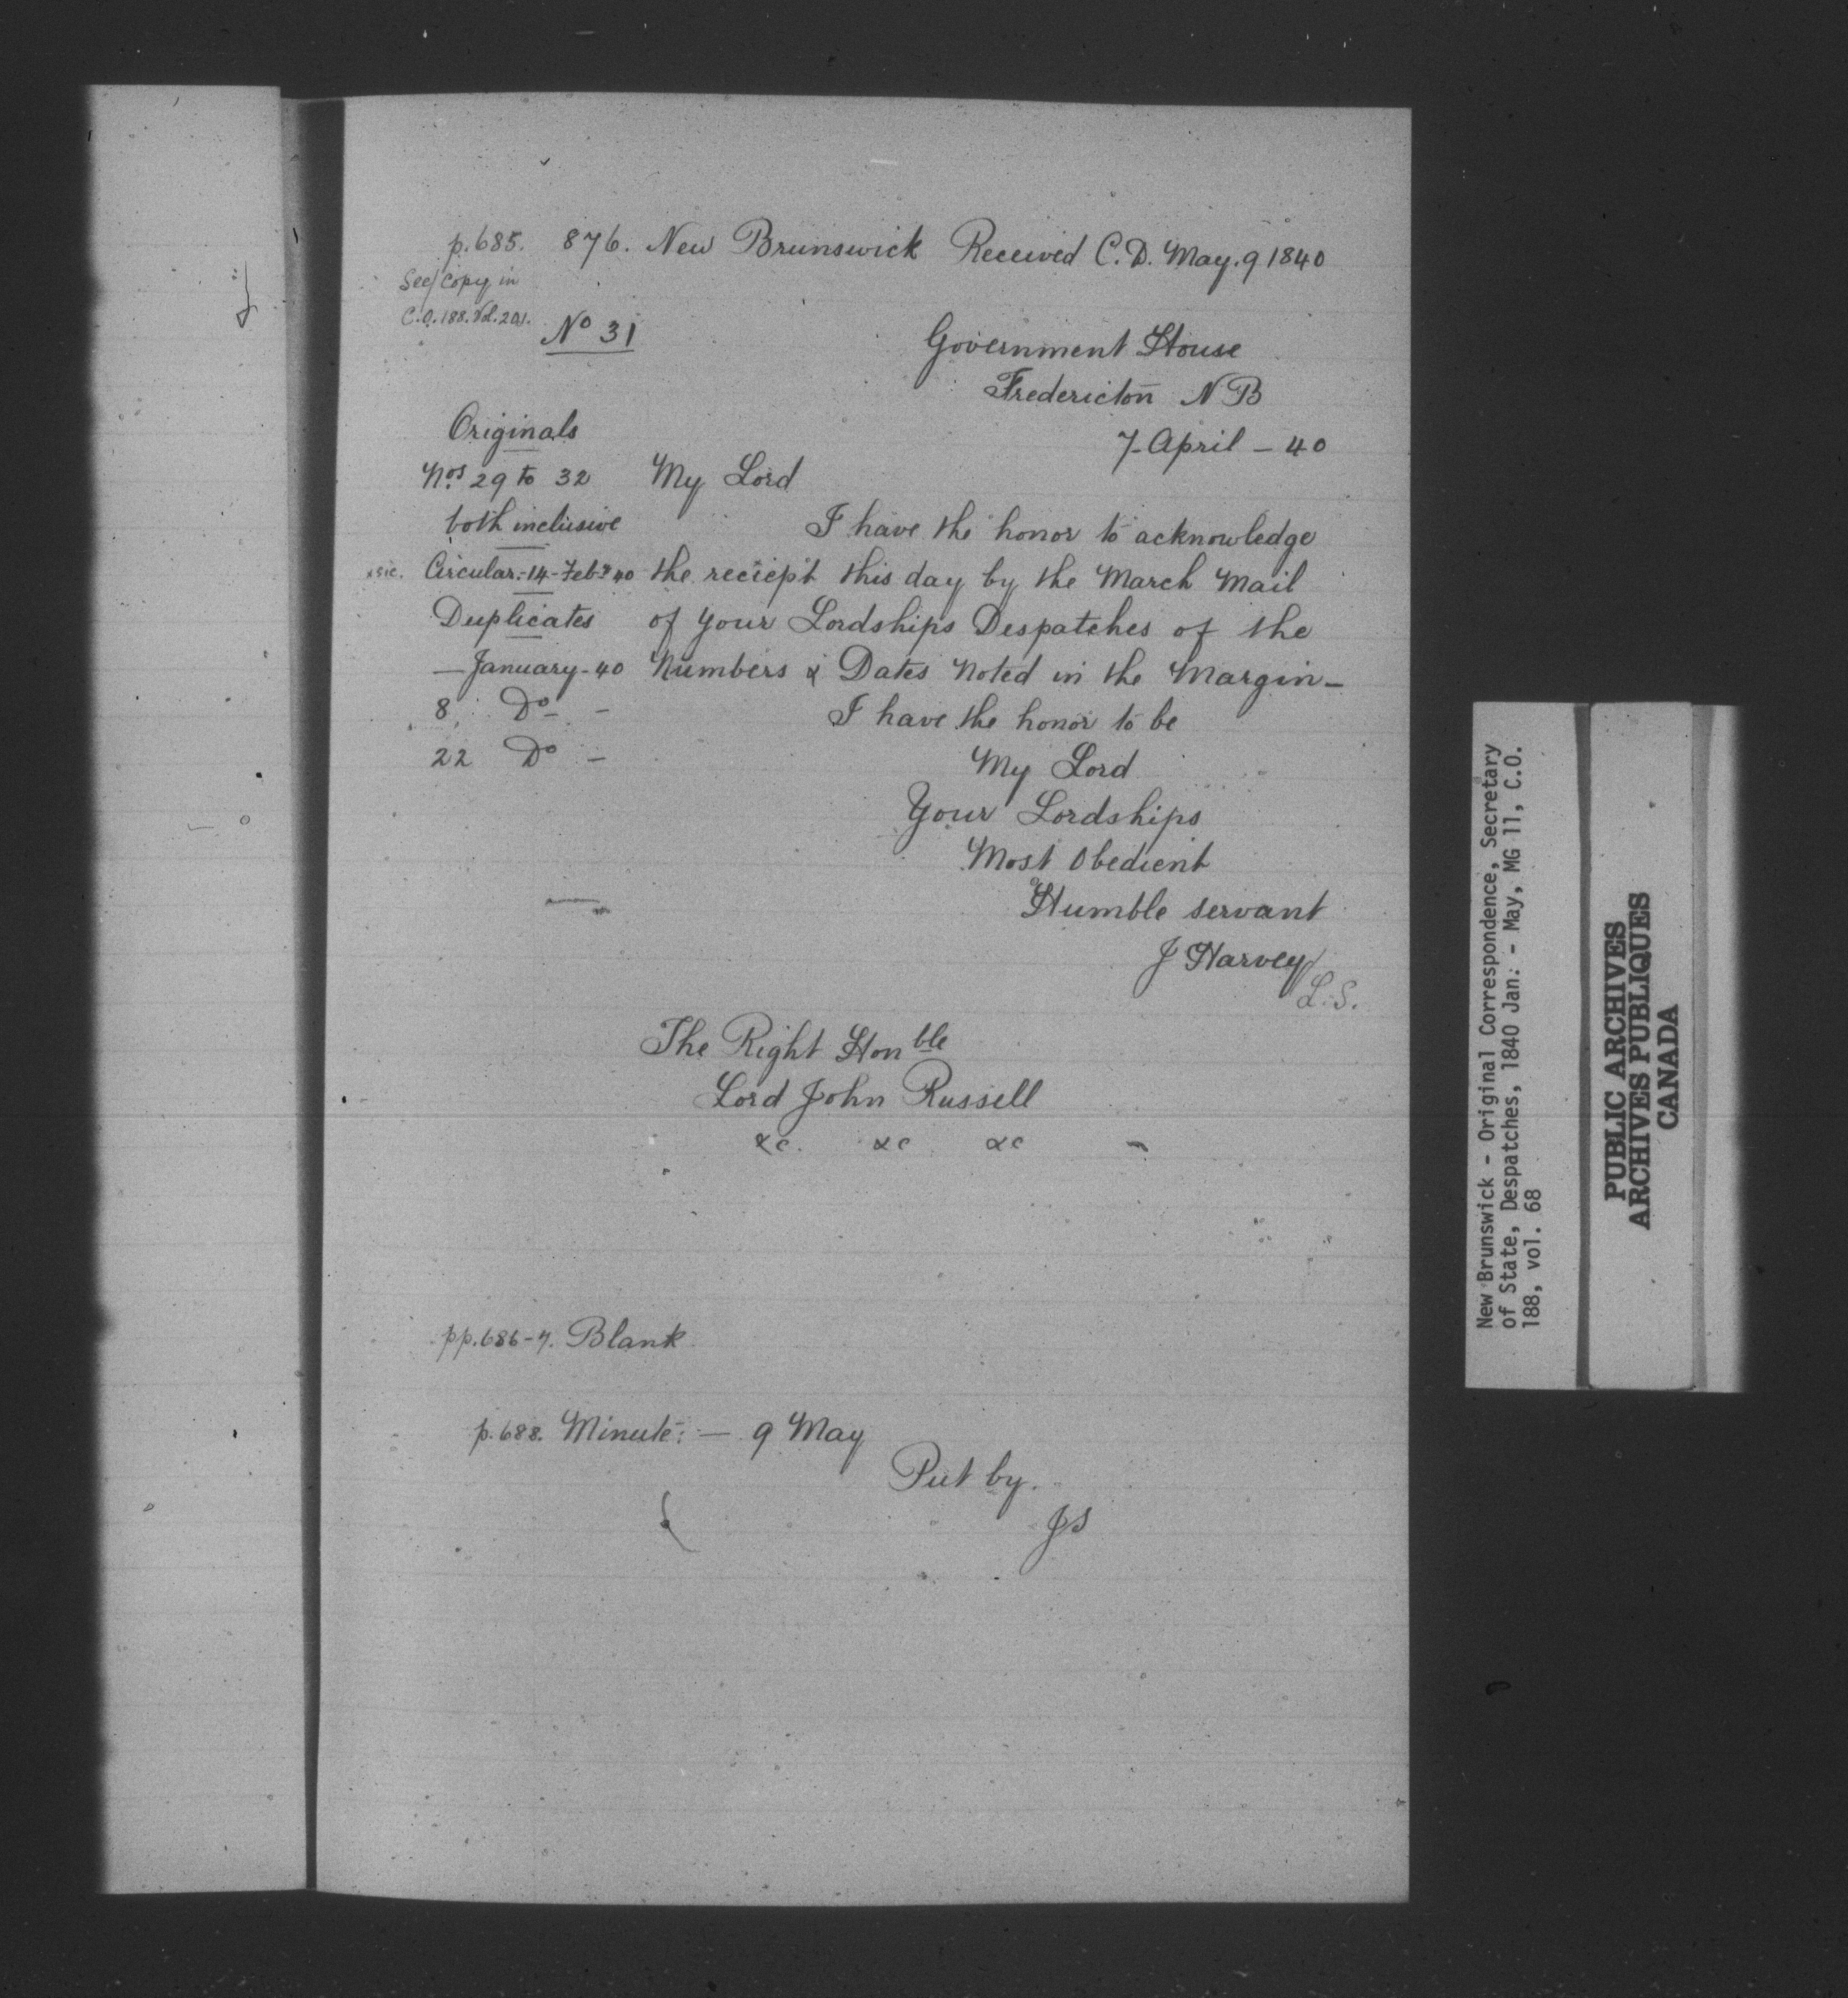 p.685. 876. New Brunswick Received C.D. May. 9 1840
See/Copy in
C.O.188.Vol.201.
No 31
Government House
Fredericton N B
7 April – 40
Originals
Nos 29 to 32
both inclusive
xsic. Circular.-14-Feby 40
Duplicates
– January - 40
8 Do –
22 Do –
My Lord
I have the honor to acknowledge
the reciept this day by the March Mail
of your Lordships Despatches of the
Numbers & Dates noted in the Margin –
I have the honor to be
My Lord
Your Lordships
Most Obedient
Humble servant
J Harvey
L.S.
The Right Honble
Lord John Russell
&c. &c &c
pp.686-7. Blank
p.688. Minute: – 9 May
Put by.
JS
New Brunswick - Original Correspondence, Secretary
of State, Despatches, 1840 Jan. - May, MG 11, C.O.
188, vol. 68
PUBLIC ARCHIVES
ARCHIVES PUBLIQUES
CANADA